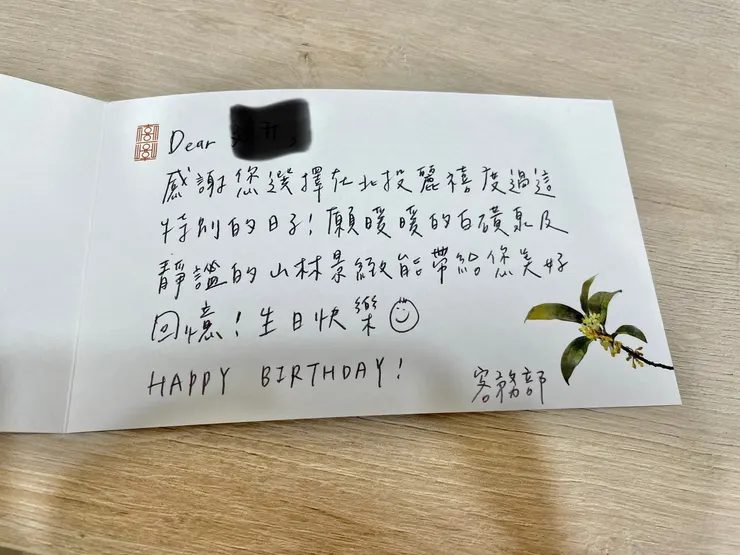 Dear
感謝您選擇在北投麗禧度過這
特別的日子！願暖暖的白磺泉及
靜謐的山林景緻能帶給您美好
回憶！生日快樂
HAPPY BIRTHDAY!
客務部